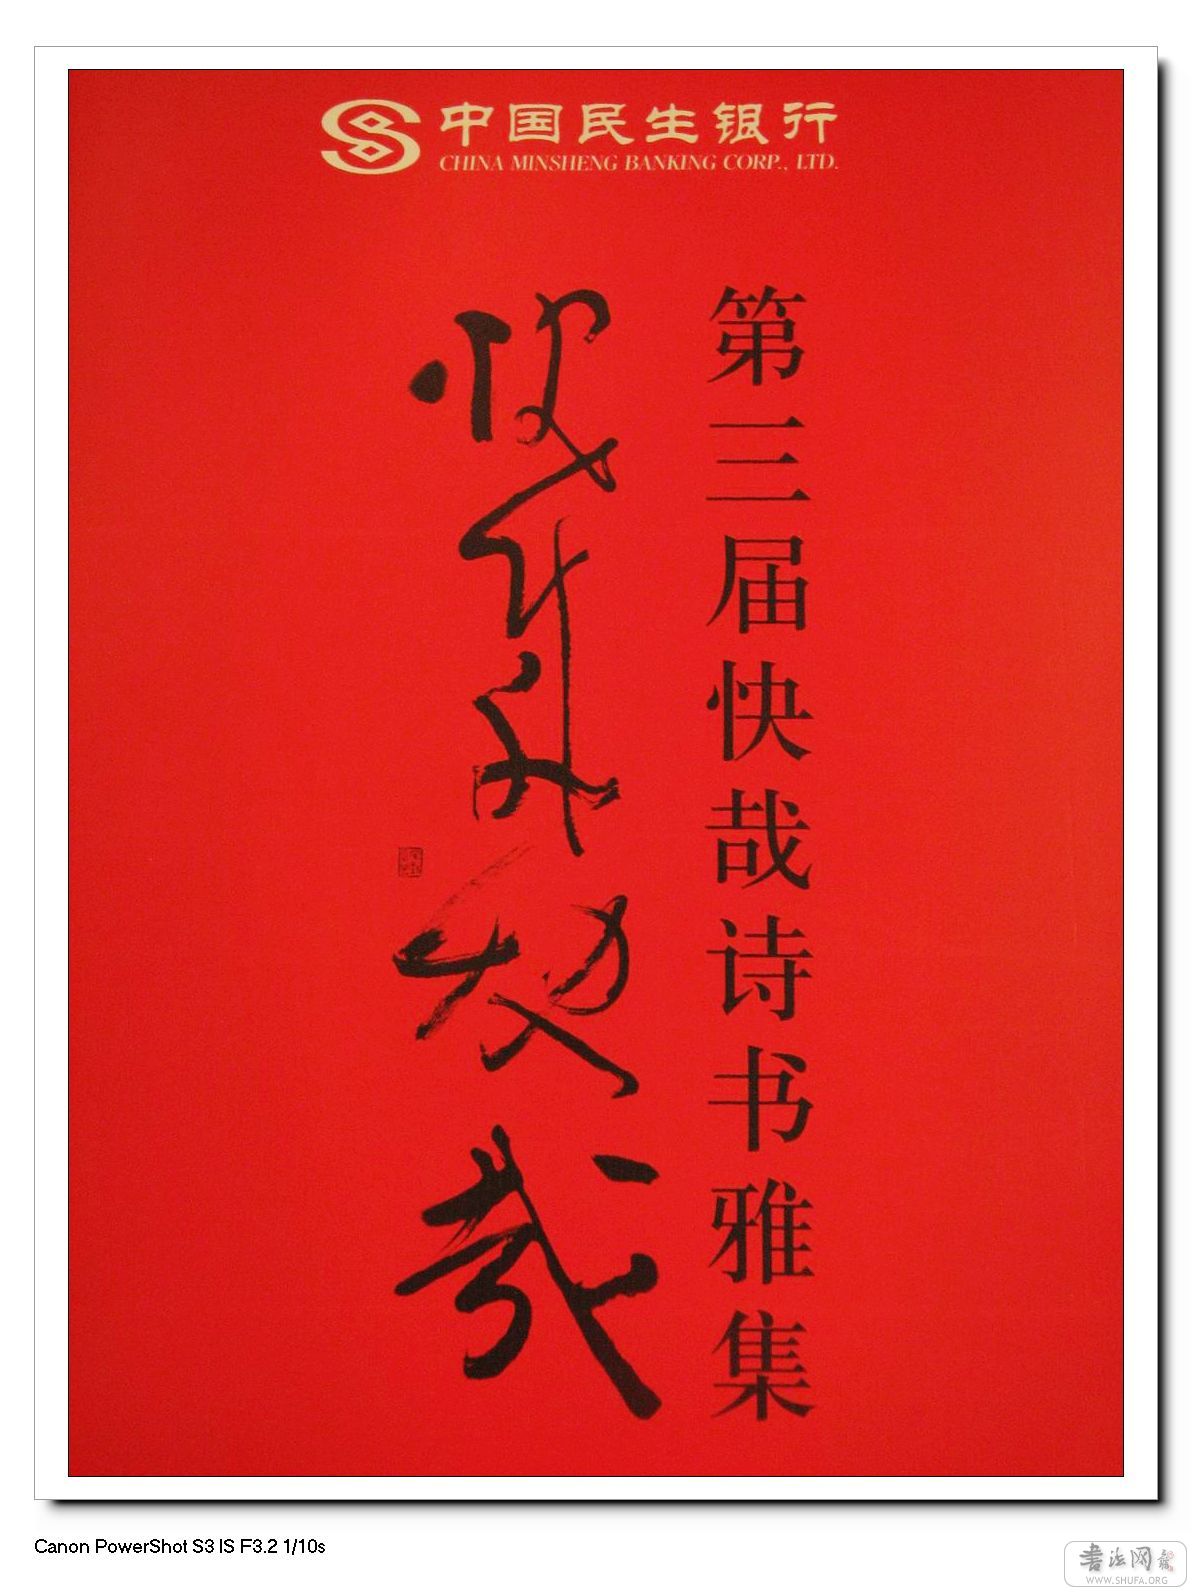 中国民生银行
CHINA MINSHENG BANKING CORP., LTD.
第三届快哉诗书雅集
哉
Canon PowerShot S3 IS F3.2 1/10s
書法网
WWW.SHUFA.ORG